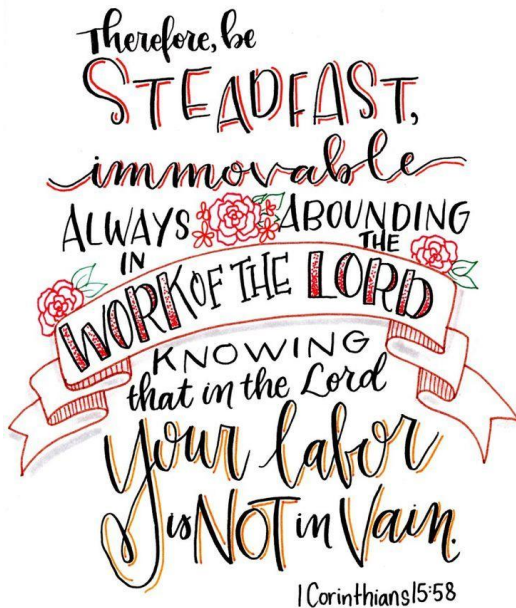 Therefore, be
STEADFAST,
immovable
ALWAYS ABOUNDING
IN THE
WORK OF THE LORD
KNOWING
that in the Lord
Your labor
is NOT in Vain.
1 Corinthians 15:58